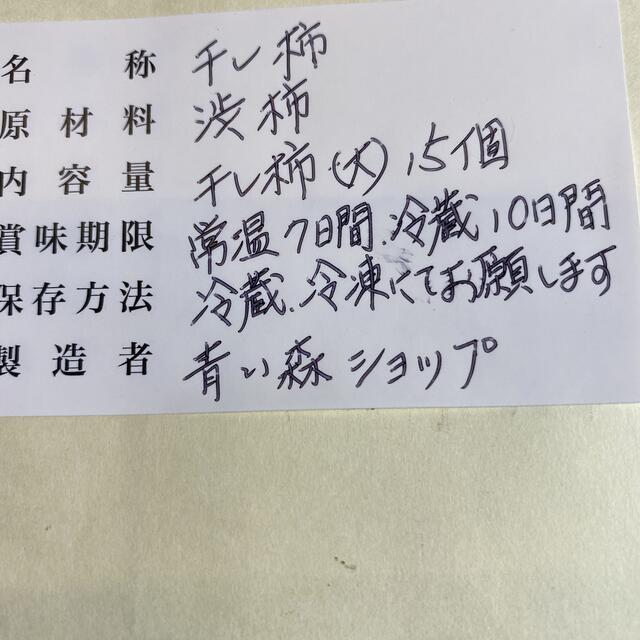 名称 干し柿
原材料 渋柿
内容量 干し柿(大)15個
賞味期限 常温7日間、冷蔵10日間
保存方法 冷蔵、冷凍にてお願します
製造者 青い森ショップ